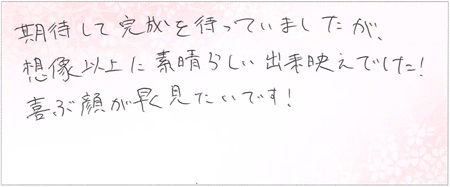 期待して完成を待っていましたが、
想像以上に素晴らしい出来映えでした!
喜ぶ顔が早く見たいです!